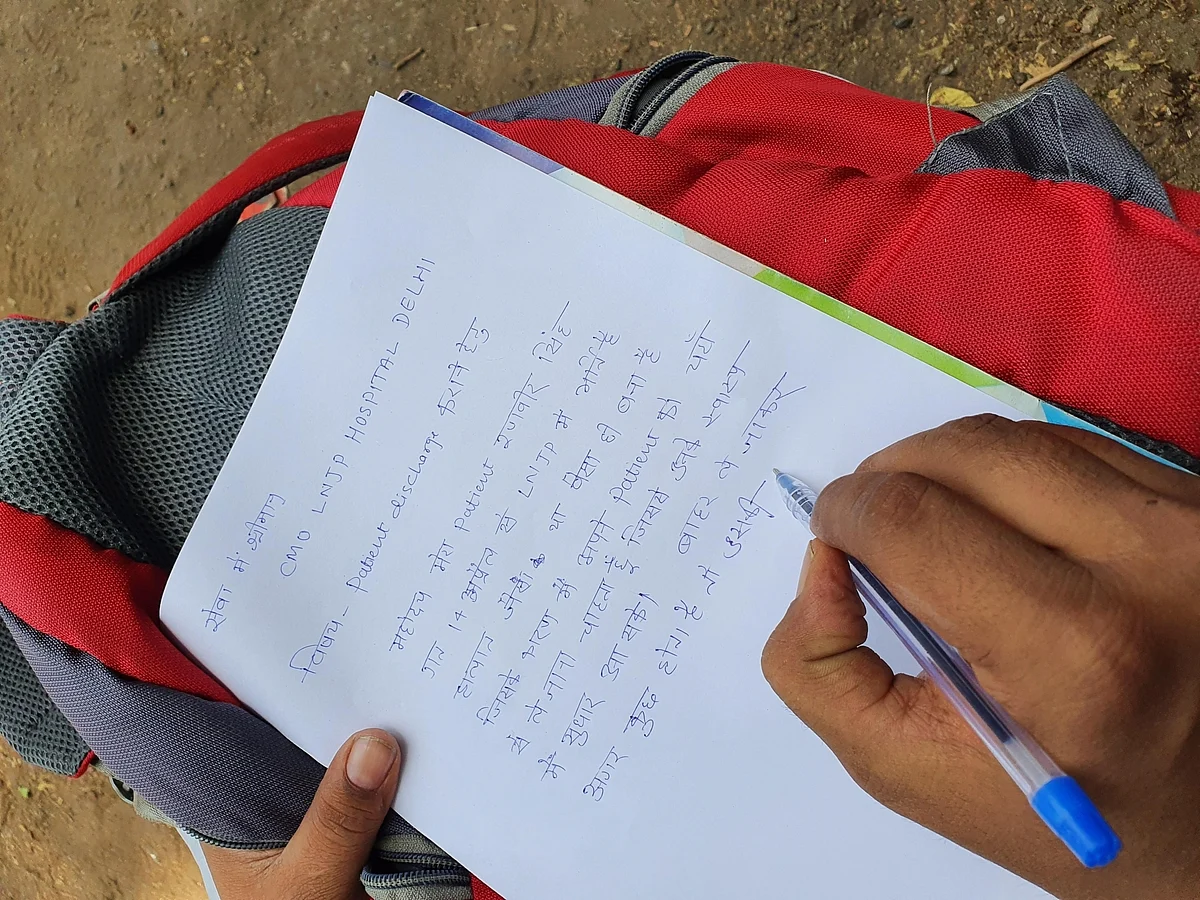 सेवा में श्रीमान्
CMO LNJP HOSPITAL DELHI
विषय - Patient discharge कराने हेतु
महोदय मेरा Patient रणवीर सिंह
गत 14 अप्रैल से LNJP में भर्ति है
हालात जैसी था वैसा ही बना है
जिसके कारण मैं अपने Patient को यहाँ
से ले जाना चाहता हूँ जिससे उनके स्वास्थ्य
में सुधार आ सके।
अगर कुछ होता है तो बाहर ले जाकर
उसकी